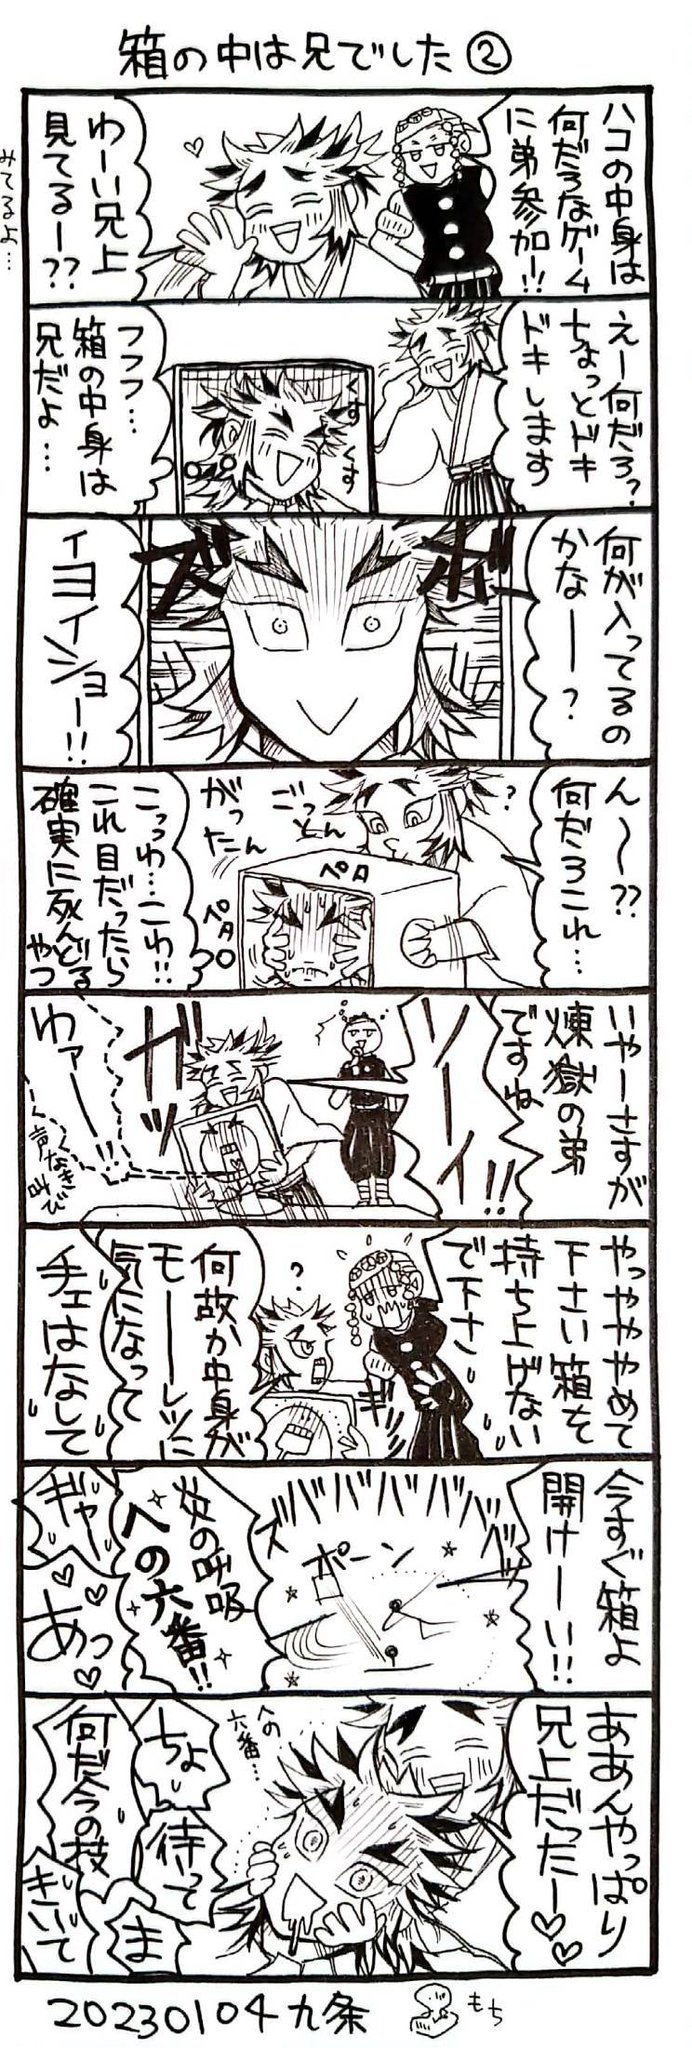 箱の中は兄でした②
ハコの中身は
何だろなゲーム
に弟参加ー!!
わーい兄上
見てるー??
みてるよ…
えー何だろ?
ちょっとドキ
ドキします
くす
くす
フフフ…
箱の中身は
兄だよ…
何が入ってるの
かなー?
ズボ
ィヨイ
ショー!!
ん〜??
何だろこれ…
?
ごっとん
がったん
ペタ
ペタ
こっっわ…こわ!!
これ目だったら
確実に死んどる
やつ
いやーさすが
煉獄の弟
ですね
ソーイ!!
ガッ
わァー!!
声なき
叫び
やっややめて
下さい箱を
持ち上げない
で下さ
ギッ
?
何故か中身が
モーレツに
気になって
チェはなして
今すぐ箱よ
開けーい!!
ズバババババッ
ポーン
炎の呼吸
への六番!!
ギャー
あっ
ああんやっぱり
兄上だったー
への
六番…
ちょ
待って
何だ今の技
ま
きいて
20230104九条
もち